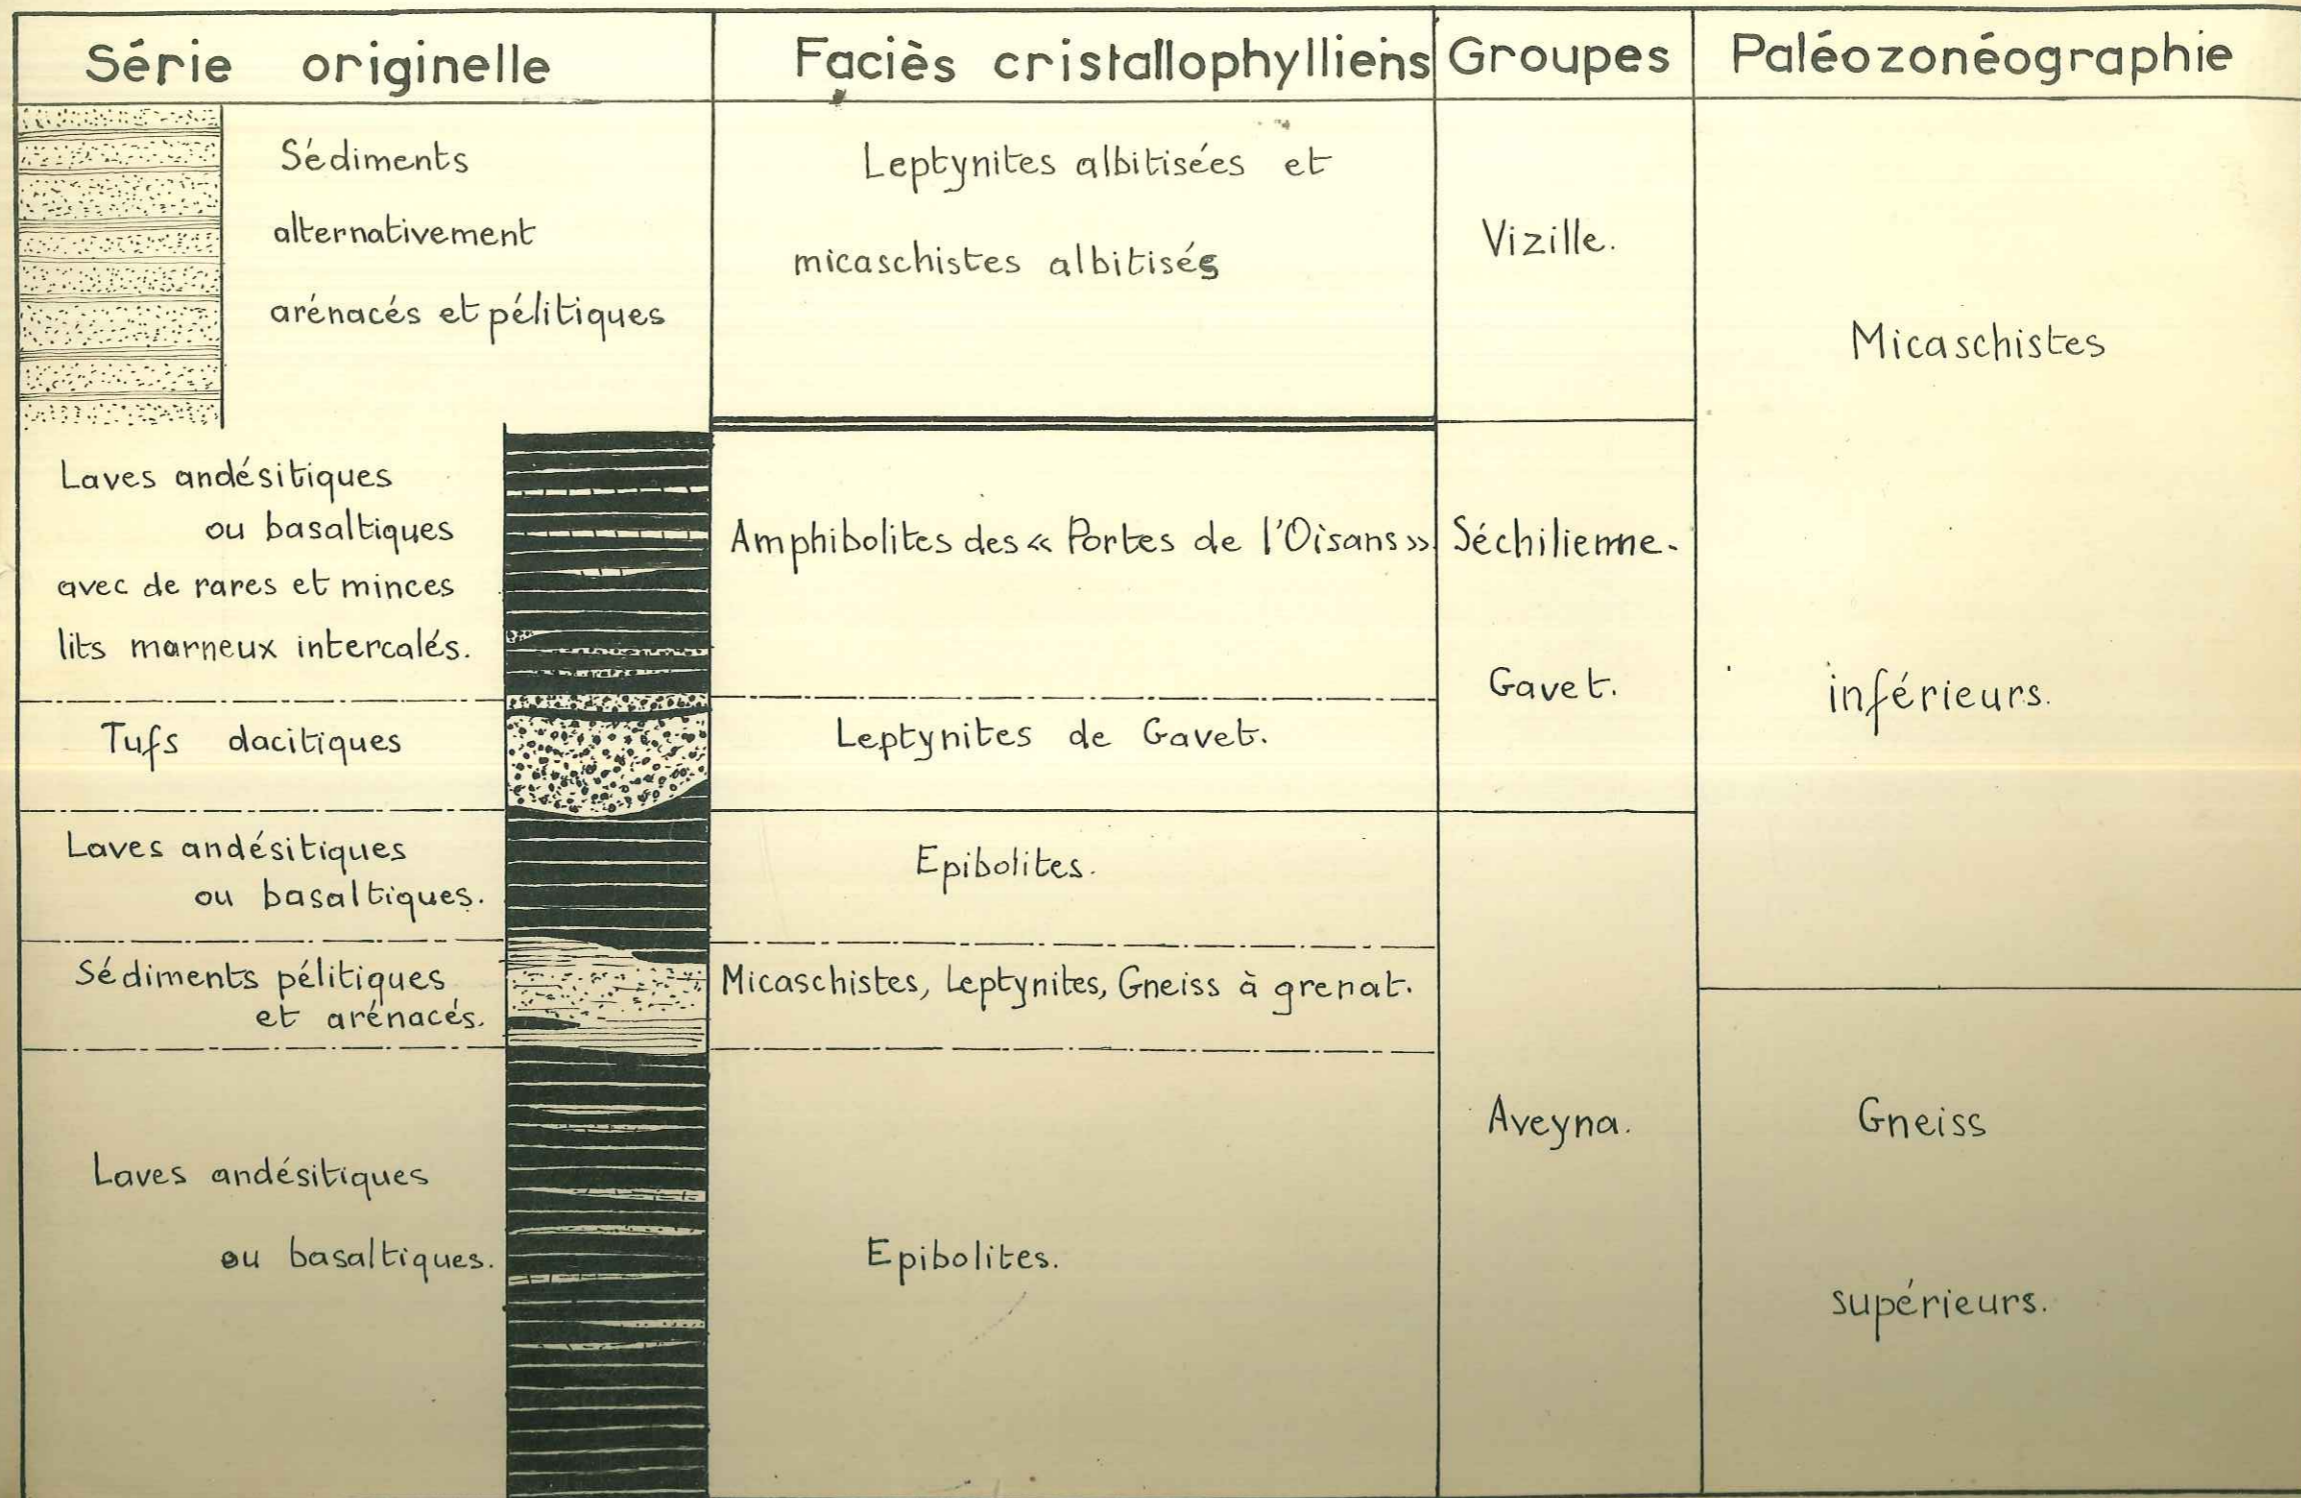 Série originelle
Faciès cristallophylliens
Groupes
Paléozonéographie
Sédiments
alternativement
arénacés et pélitiques
Leptynites albitisées et
micaschistes albitisés
Vizille.
Micaschistes
inférieurs.
Laves andésitiques
ou basaltiques
avec de rares et minces
lits marneux intercalés.
Amphibolites des « Portes de l'Oisans »
Séchilienne.
Gavet.
Tufs dacitiques
Leptynites de Gavet.
Laves andésitiques
ou basaltiques.
Epibolites.
Sédiments pélitiques
et arénacés.
Micaschistes, Leptynites, Gneiss à grenat.
Aveyna.
Gneiss
supérieurs.
Laves andésitiques
ou basaltiques.
Epibolites.